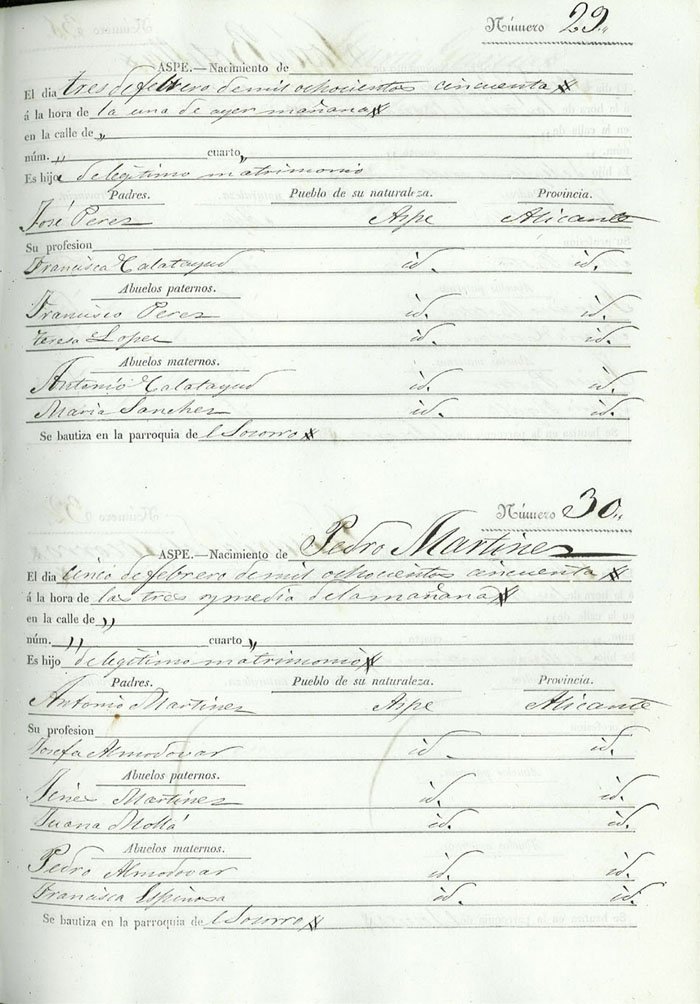 Número 29.,
ASPE.—Nacimiento de
El dia tres de febrero de mil ochocientos cincuenta
á la hora de la una de ayer mañana
en la calle de „
núm. „ cuarto „
Es hijo de legitimo matrimonio
Padres. Pueblo de su naturaleza. Provincia.
José Perez Aspe Alicante
Su profesion
Francisca Calatayud id. id.
Abuelos paternos.
Francisco Perez id. id.
Teresa Lopez id. id.
Abuelos maternos.
Antonio Calatayud id. id.
Maria Sanchez id. id.
Se bautiza en la parroquia de l Socorro
Número 30.,
ASPE.—Nacimiento de Pedro Martinez
El dia cinco de febrero de mil ochocientos cincuenta
á la hora de las tres y media de la mañana
en la calle de „
núm. „ cuarto „
Es hijo de legitimo matrimonio
Padres. Pueblo de su naturaleza. Provincia.
Antonio Martinez Aspe Alicante
Su profesion
Josefa Almodovar id. id.
Abuelos paternos.
Martinez id. id.
Juana Mollá id. id.
Abuelos maternos.
Pedro Almodovar id. id.
Francisca Espinosa id. id.
Se bautiza en la parroquia de l Socorro